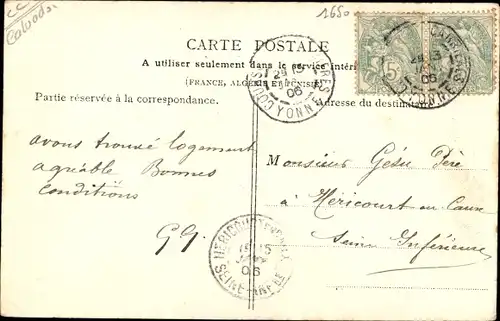 Calvados
1650
CARTE POSTALE
A utiliser seulement dans le service intéri
(FRANCE, ALGÉRIE ET TUNISIE)
Partie réservée à la correspondance.
Adresse du destinataire
5c
06
YONNE
06
YONNE
avons trouvé logement
agréable Bonnes
conditions
GG.
Monsieur Gésu Père
à Héricourt en Caux
Seine Inférieure
HÉRICOURT-EN-CAUX
15
06
SEINE-INFRE